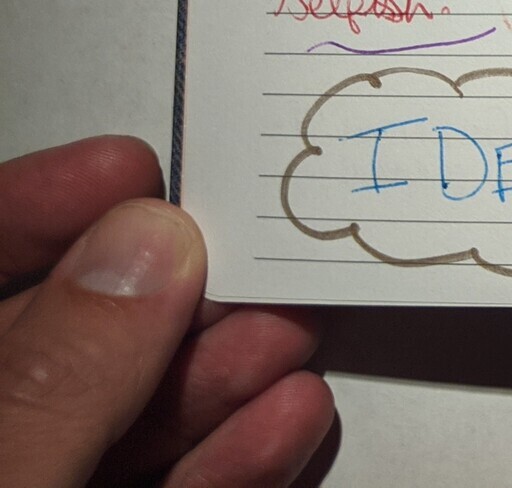 selfish.
IDE